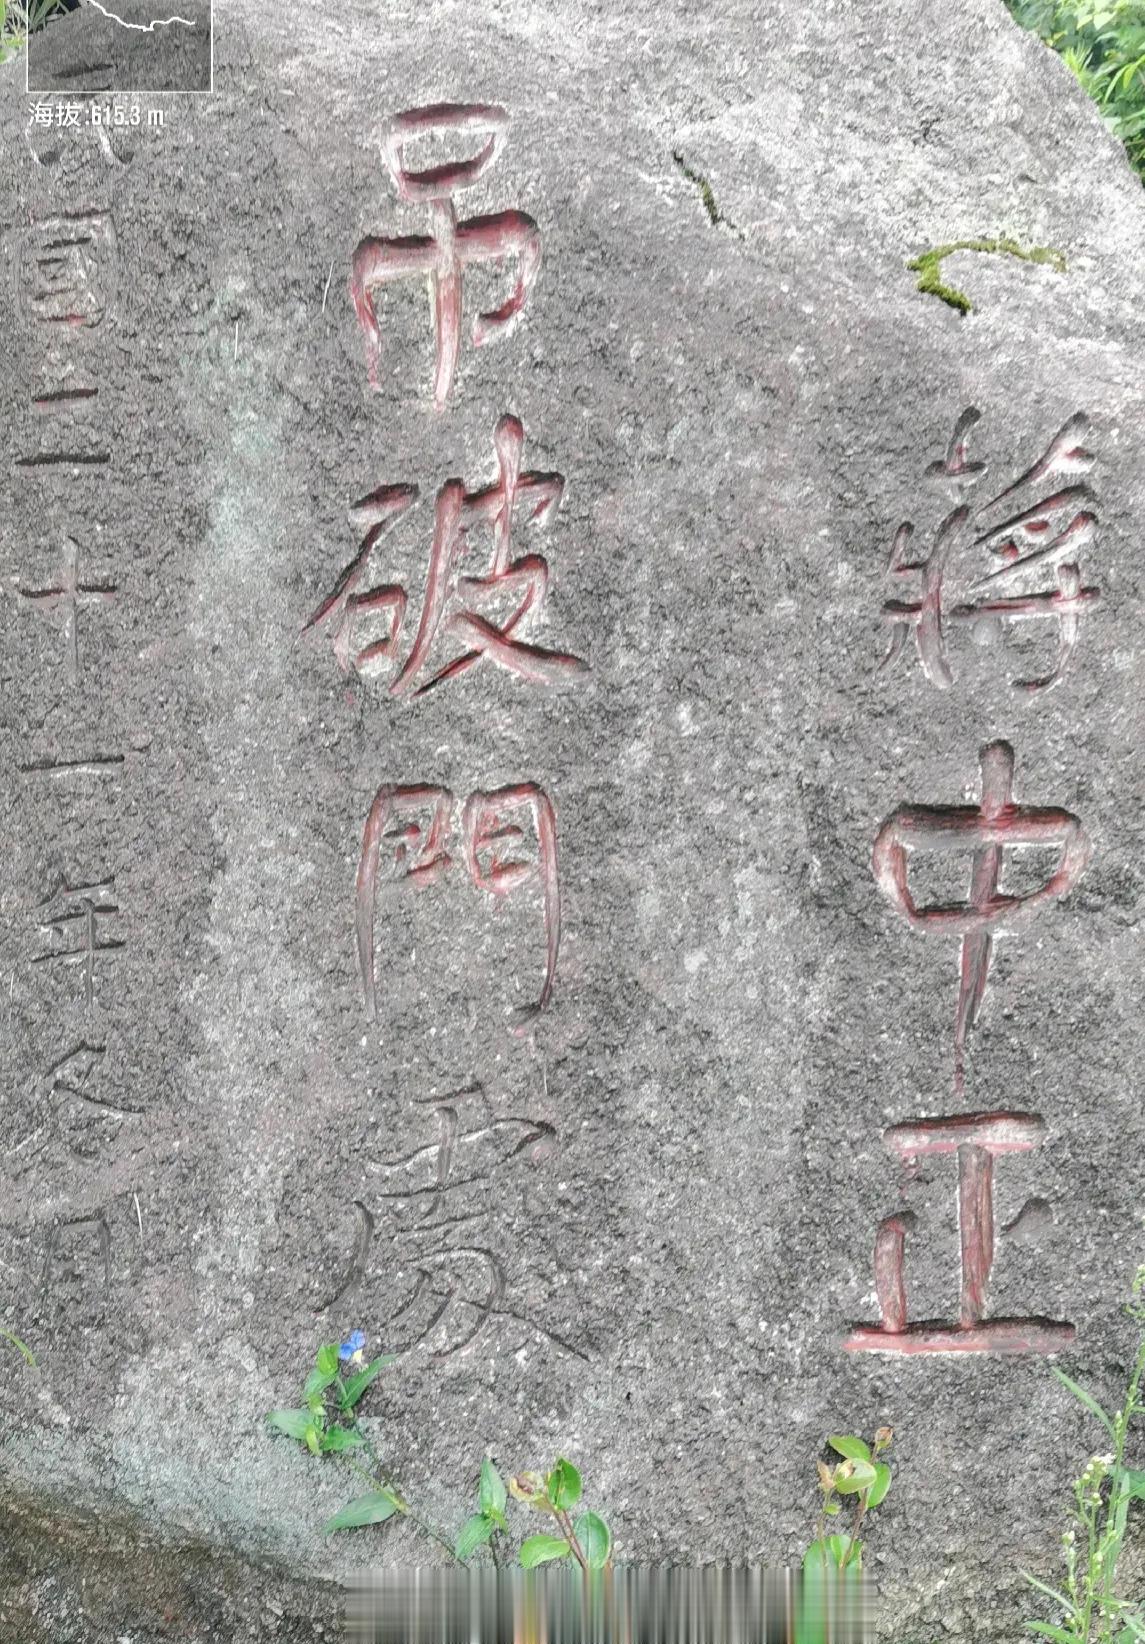 海拔:615.3 m
蔣中正
吊破門處
國二十一年冬月